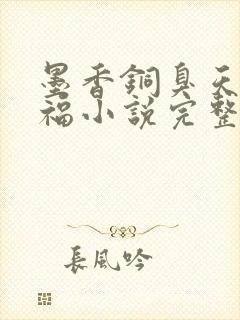 墨香銅臭天
福小說完整
長風吟